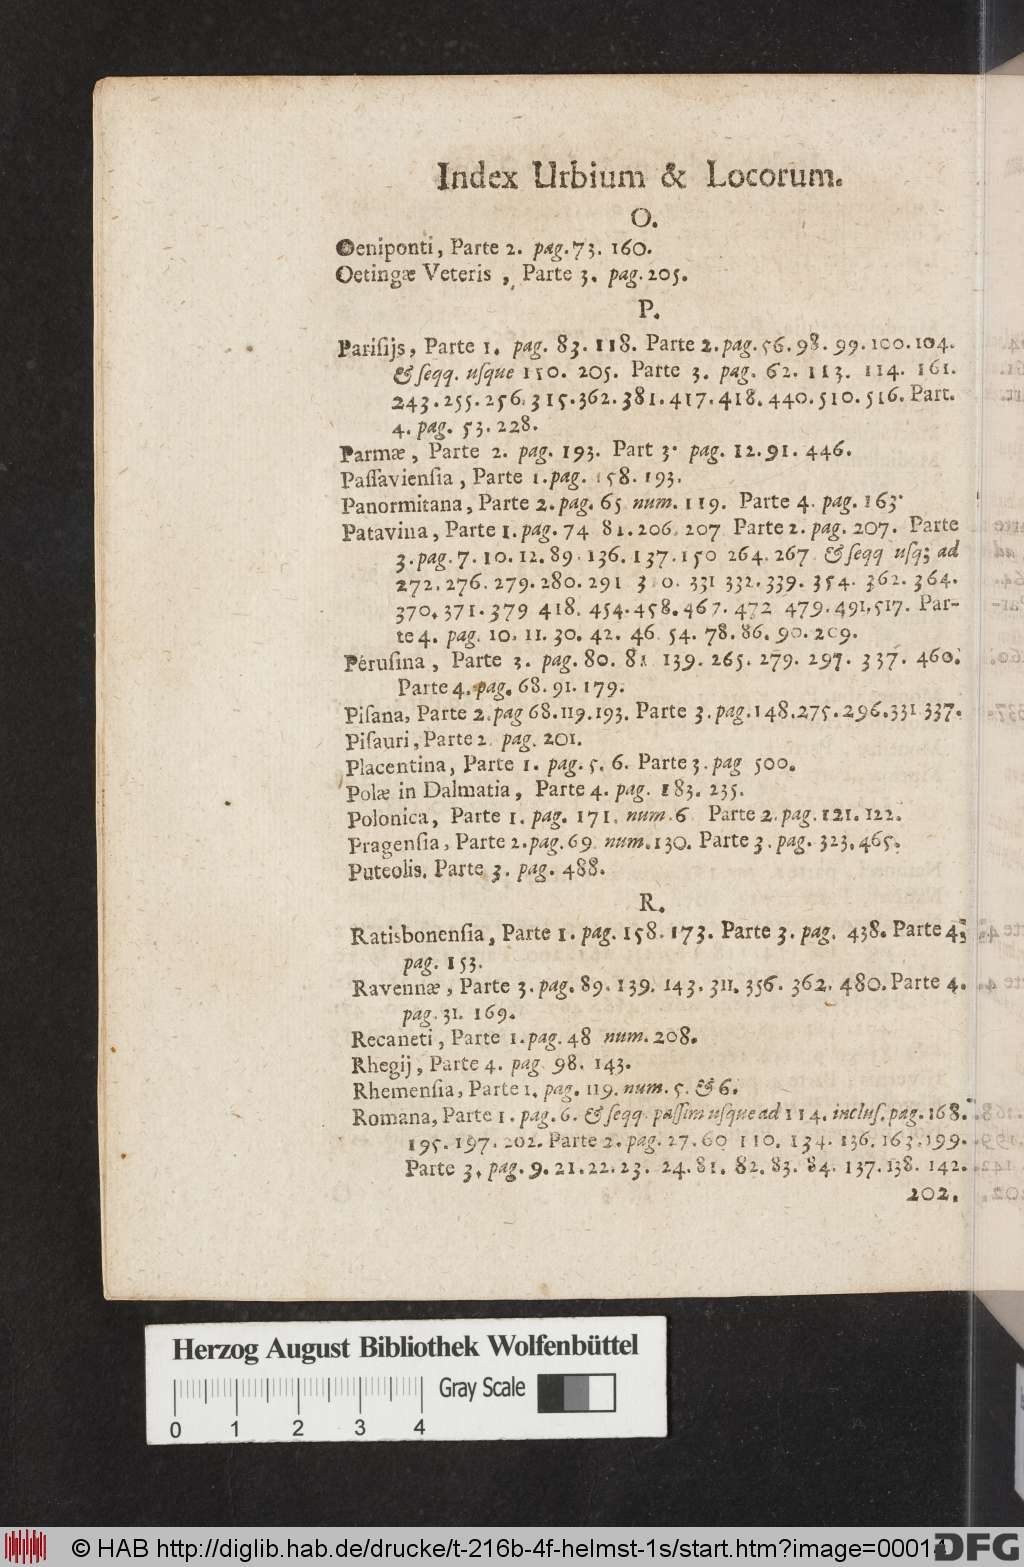 Index Urbium & Locorum.
O.
Oeniponti, Parte 2. pag. 73. 160.
Oetingæ Veteris, Parte 3. pag. 205.
P.
Pariſijs, Parte 1. pag. 83. 118. Parte 2. pag. 56. 98. 99. 100. 104.
& ſeqq. uſque 150. 205. Parte 3. pag. 62. 113. 114. 161.
243. 255. 256. 315. 362. 381. 417. 418. 440. 510. 516. Part.
4. pag. 53. 228.
Parmæ, Parte 2. pag. 193. Part 3. pag. 12. 91. 446.
Paſſavienſia, Parte 1. pag. 158. 193.
Panormitana, Parte 2. pag. 65 num. 119. Parte 4. pag. 163.
Patavina, Parte 1. pag. 74 81. 206. 207 Parte 2. pag. 207. Parte
3. pag. 7. 10. 12. 89. 136. 137. 150 264. 267 & ſeqq uſq; ad
272. 276. 279. 280. 291 310. 331 332. 339. 354. 362. 364.
370. 371. 379 418. 454. 458. 467. 472 479. 491. 517. Par-
te 4. pag. 10. 11. 30. 42. 46. 54. 78. 86. 90. 209.
Peruſina, Parte 3. pag. 80. 81 139. 265. 279. 297. 337. 460.
Parte 4. pag. 68. 91. 179.
Piſana, Parte 2. pag 68. 119. 193. Parte 3. pag. 148. 275. 296. 331 337.
Piſauri, Parte 2. pag. 201.
Placentina, Parte 1. pag. 5. 6. Parte 3. pag 500.
Polæ in Dalmatia, Parte 4. pag. 183. 235.
Polonica, Parte 1. pag. 171. num. 6 Parte 2. pag. 121. 122.
Pragenſia, Parte 2. pag. 69. num. 130. Parte 3. pag. 323. 465.
Puteolis. Parte 3. pag. 488.
R.
Ratisbonenſia, Parte 1. pag. 158. 173. Parte 3. pag. 438. Parte 4.
pag. 153.
Ravennæ, Parte 3. pag. 89. 139. 143. 311. 356. 362. 480. Parte 4.
pag. 31. 169.
Recaneti, Parte 1. pag. 48 num. 208.
Rhegij, Parte 4. pag 98. 143.
Rhemenſia, Parte 1. pag. 119. num. 5. & 6.
Romana, Parte 1. pag. 6. & ſeqq. paſſim uſque ad 114. incluſ. pag. 168.
195. 197. 202. Parte 2. pag. 27. 60 110. 134. 136. 163. 199.
Parte 3. pag. 9. 21. 22. 23. 24. 81. 82. 83. 84. 137. 138. 142.
202.
Herzog August Bibliothek Wolfenbüttel
Gray Scale
0 1 2 3 4
© HAB http://diglib.hab.de/drucke/t-216b-4f-helmst-1s/start.htm?image=00014
DFG